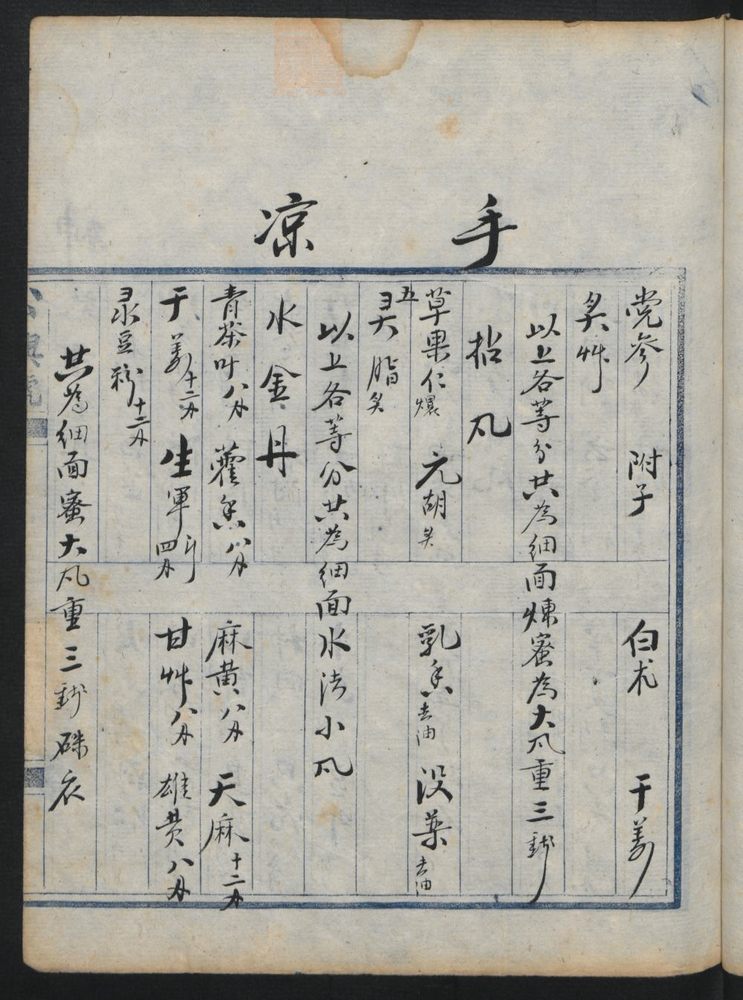 手 凉
党参 附子 白朮 干姜
炙艸
以上各等分共為細面煉蜜為大凡重三錢
拈凡
草果仁 元胡炙 乳香去油 没薬去油
五灵脂炙
以上各等分共為细面水法小凡
水金丹
青茶叶八分 藿香八分 麻黄八分 天麻十二分
干姜十二分 生軍 四分 甘艸八分 雄黄八分
彔豆粉十二分
共為细面蜜大凡重三錢硃衣